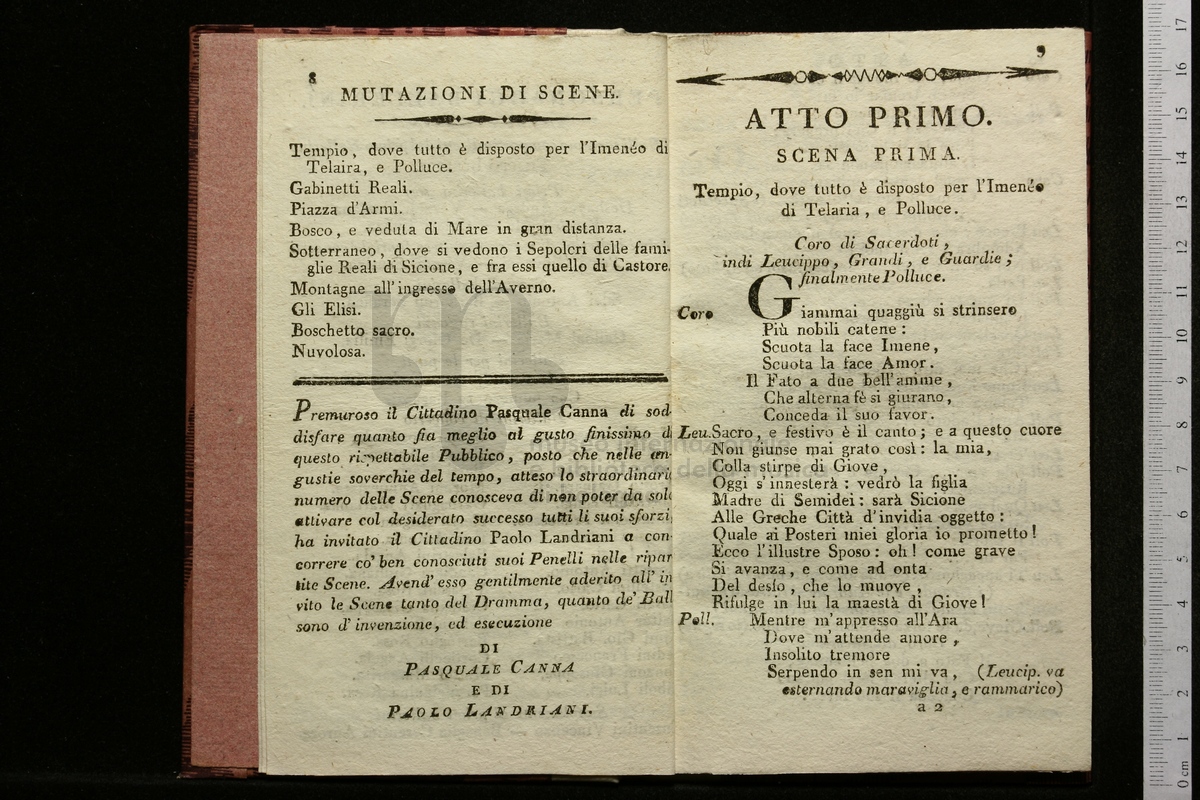 8
MUTAZIONI DI SCENE.
Tempio, dove tutto è disposto per l'Imenéo di
Telaira, e Polluce.
Gabinetti Reali.
Piazza d'Armi.
Bosco, e veduta di Mare in gran distanza.
Sotterraneo, dove si vedono i Sepolcri delle fami-
glie Reali di Sicione, e fra essi quello di Castore.
Montagne all'ingresso dell'Averno.
Gli Elisi.
Boschetto sacro.
Nuvolosa.
Premuroso il Cittadino Pasquale Canna di sod-
disfare quanto fia meglio al gusto finissimo di
questo rispettabile Pubblico, posto che nelle an-
gustie soverchie del tempo, atteso lo straordinari
numero delle Scene conosceva di non poter da sol
attivare col desiderato successo tutti li suoi sforzi,
ha invitato il Cittadino Paolo Landriani a con-
correre co' ben conosciuti suoi Penelli nelle ripar
tite Scene. Avend' esso gentilmente aderito all' in
vito le Scene tanto del Dramma, quanto de' Ball
sono d' invenzione, ed esecuzione
DI
PASQUALE CANNA
E DI
PAOLO LANDRIANI.
9
ATTO PRIMO.
SCENA PRIMA.
Tempio, dove tutto è disposto per l'Imenéo
di Telaria, e Polluce.
Coro di Sacerdoti,
indi Leucippo, Grandi, e Guardie;
finalmente Polluce.
Coro Giammai quaggiù si strinsero
Più nobili catene:
Scuota la face Imene,
Scuota la face Amor.
Il Fato a due bell'anime,
Che alterna fè si giurano,
Conceda il suo favor.
Leu. Sacro, e festivo è il canto; e a questo cuore
Non giunse mai grato così: la mia,
Colla stirpe di Giove,
Oggi s'innesterà: vedrò la figlia
Madre di Semidei: sarà Sicione
Alle Greche Città d'invidia oggetto:
Quale ai Posteri miei gloria io prometto!
Ecco l'illustre Sposo: oh! come grave
Si avanza, e come ad onta
Del desìo, che lo muove,
Rifulge in lui la maestà di Giove!
Poll. Mentre m'appresso all'Ara
Dove m'attende amore,
Insolito tremore
Serpendo in sen mi va, (Leucip. va
esternando maraviglia, e rammarico)
a 2